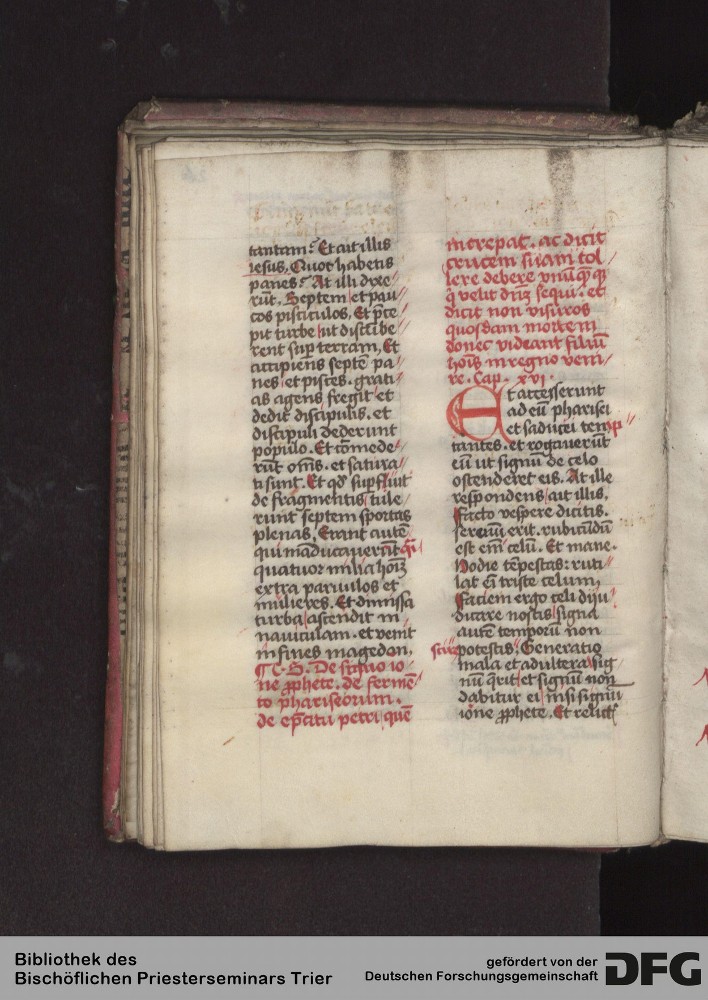 tantam? Et ait illis
iesus. Quot habetis
panes? At illi dixe
rūt. Septem et pau
cos pisciculos. Et p̄ce
pit turbe ut discūbe
rent sup terram. Et
accipiens septē pa
nes et pisces. grati
as agens fregit et
dedit discipulis. et
discipuli dederunt
populo. Et cōmede
rūt om̄s. et satura
ti sunt. Et qd̓ supfluit
de fragmentis tule
runt septem sportas
plenas. Erant autē
qui māducauerūt q̄si
quatuor milia hoīm
extra paruulos et
mulieres. Et dimissa
turba ascendit in
nauiculam. et venit
in fines magedon.
¶ C. S. De signo io
ne ꝓphete. de fermē
to phariseorum.
de ep̄citu petri quē
increpat. ac dicit
crucem suam tol
lere debere vnūq̄ꝫq̄ꝫ
q̓ velit dn̄m sequi. et
dicit non visuros
quosdam mortem
donec videant filiū
hoīs in regno veni
re. Cap. xvi.
Et accesserunt
ad eū pharisei
et saducei temp
tantes. et rogauerūt
eū ut signū de celo
ostenderet eis. At ille
respondens ait illis.
Facto vespere dicitis.
serenū erit. rubicūdū
est em̄ celū. Et mane.
Hodie tēpestas: ruti
lat em̄ triste celum.
Faciem ergo celi diiu
dicare nostis signa
autē temporū non
scire potestis. Generatio
mala et adultera sig
nū q̄rit et signū non
dabitur ei nisi signū
ione ꝓphete. Et relict̓
Bibliothek des
Bischöflichen Priesterseminars Trier
gefördert von der
Deutschen Forschungsgemeinschaft
DFG